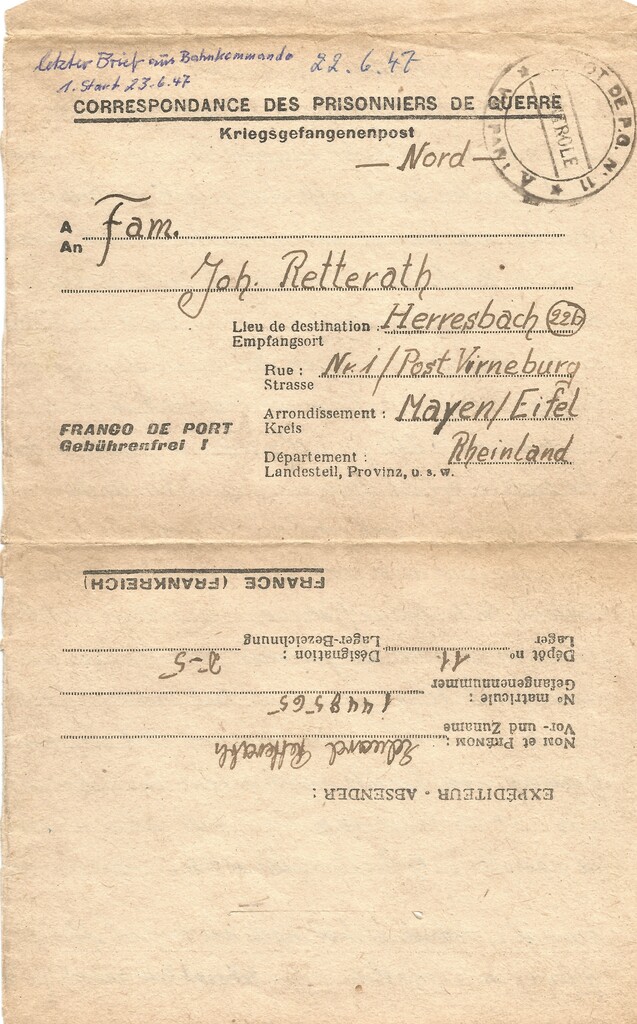 letzter Brief aus Bahnkommando 22.6.47
1. Start 23.6.47
CORRESPONDANCE DES PRISONNIERS DE GUERRE
Kriegsgefangenenpost
— Nord —
DE P.G. N° 11
A Fam.
An
Joh. Retterath
Lieu de destination : Herresbach 22b
Empfangsort
Rue : Nr. 1/Post Virneburg
Strasse
Arrondissement : Mayen/Eifel
Kreis
FRANCO DE PORT
Gebührenfrei !
Département : Rheinland
Landesteil, Provinz, u. s. w.
EXPÉDITEUR - ABSENDER :
NOM et PRÉNOM : Eduard Retterath
Vor- und Zuname
N° matricule : 1448565
Gefangenennummer
Dépôt n° 11 Désignation :
Lager Lager-Bezeichnung
FRANCE (FRANKREICH)